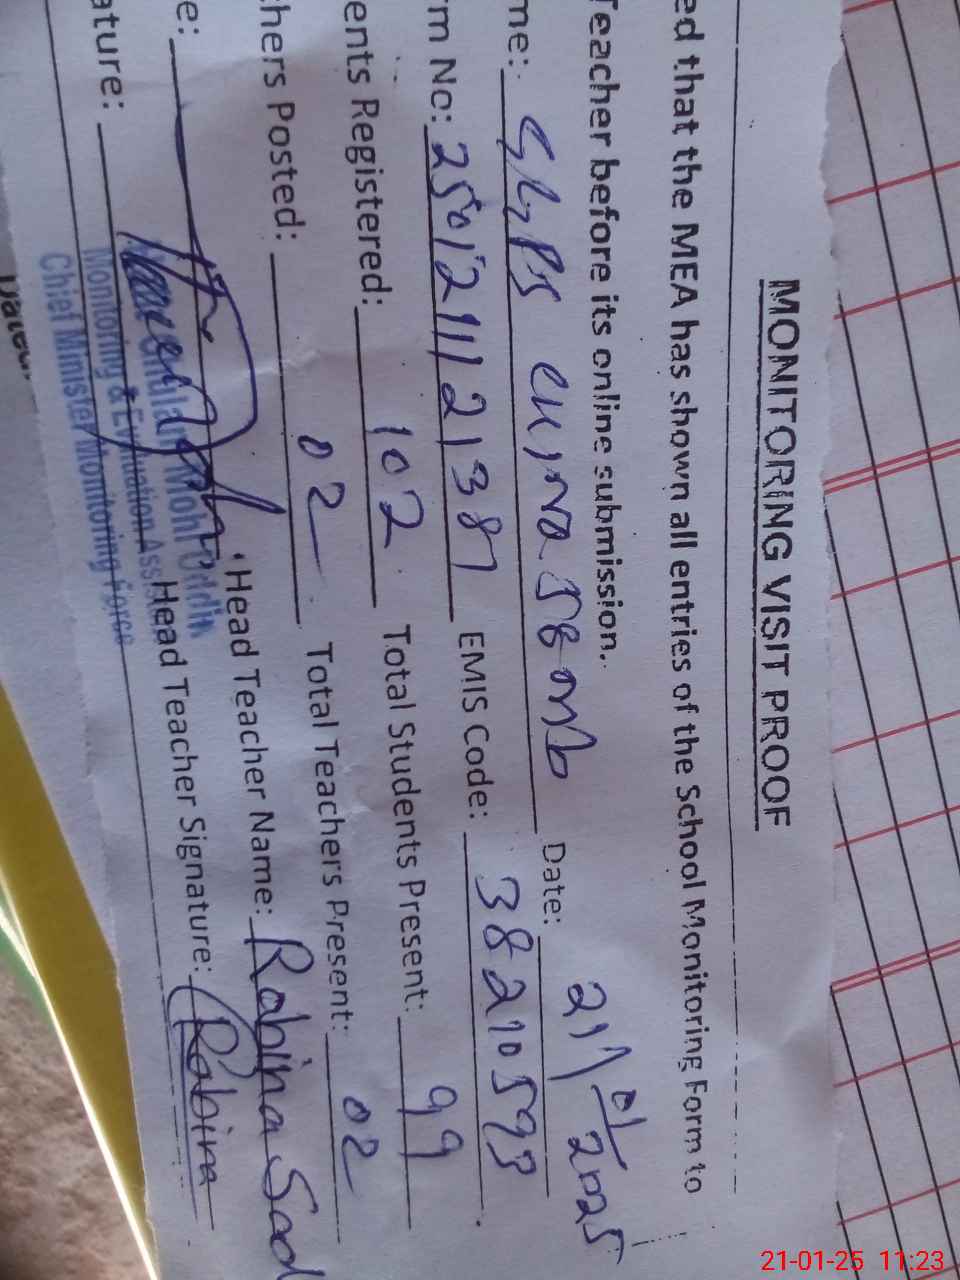 MONITORING VISIT PROOF
ed that the MEA has shown all entries of the School Monitoring Form to
Teacher before its online submission.
me: GGPS 58 mb Date: 21/01/2025
rm No: 2501211121387 EMIS Code: 38210593
ents Registered: 102 Total Students Present: 99
hers Posted: 02 Total Teachers Present: 02
e: Head Teacher Name: Robina Sad
ature: Head Teacher Signature: Robina
Mohi Uddin
Monitoring & Evaluation Assis
Chief Minister Monitoring Force
Dated:
21-01-25 11:23